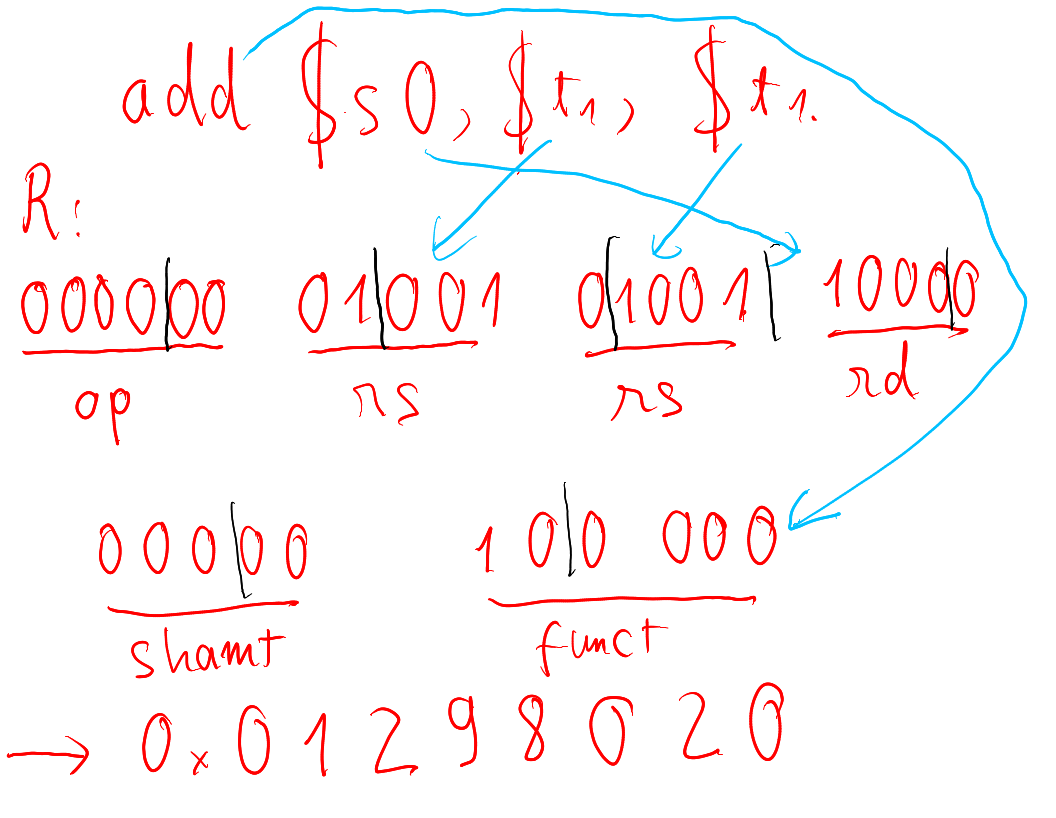 add $s0, $t1, $t1.
R:
000000 01001 01001 10000
op rs rs rd
00000 100 000
shamt funct
→ 0x01298020